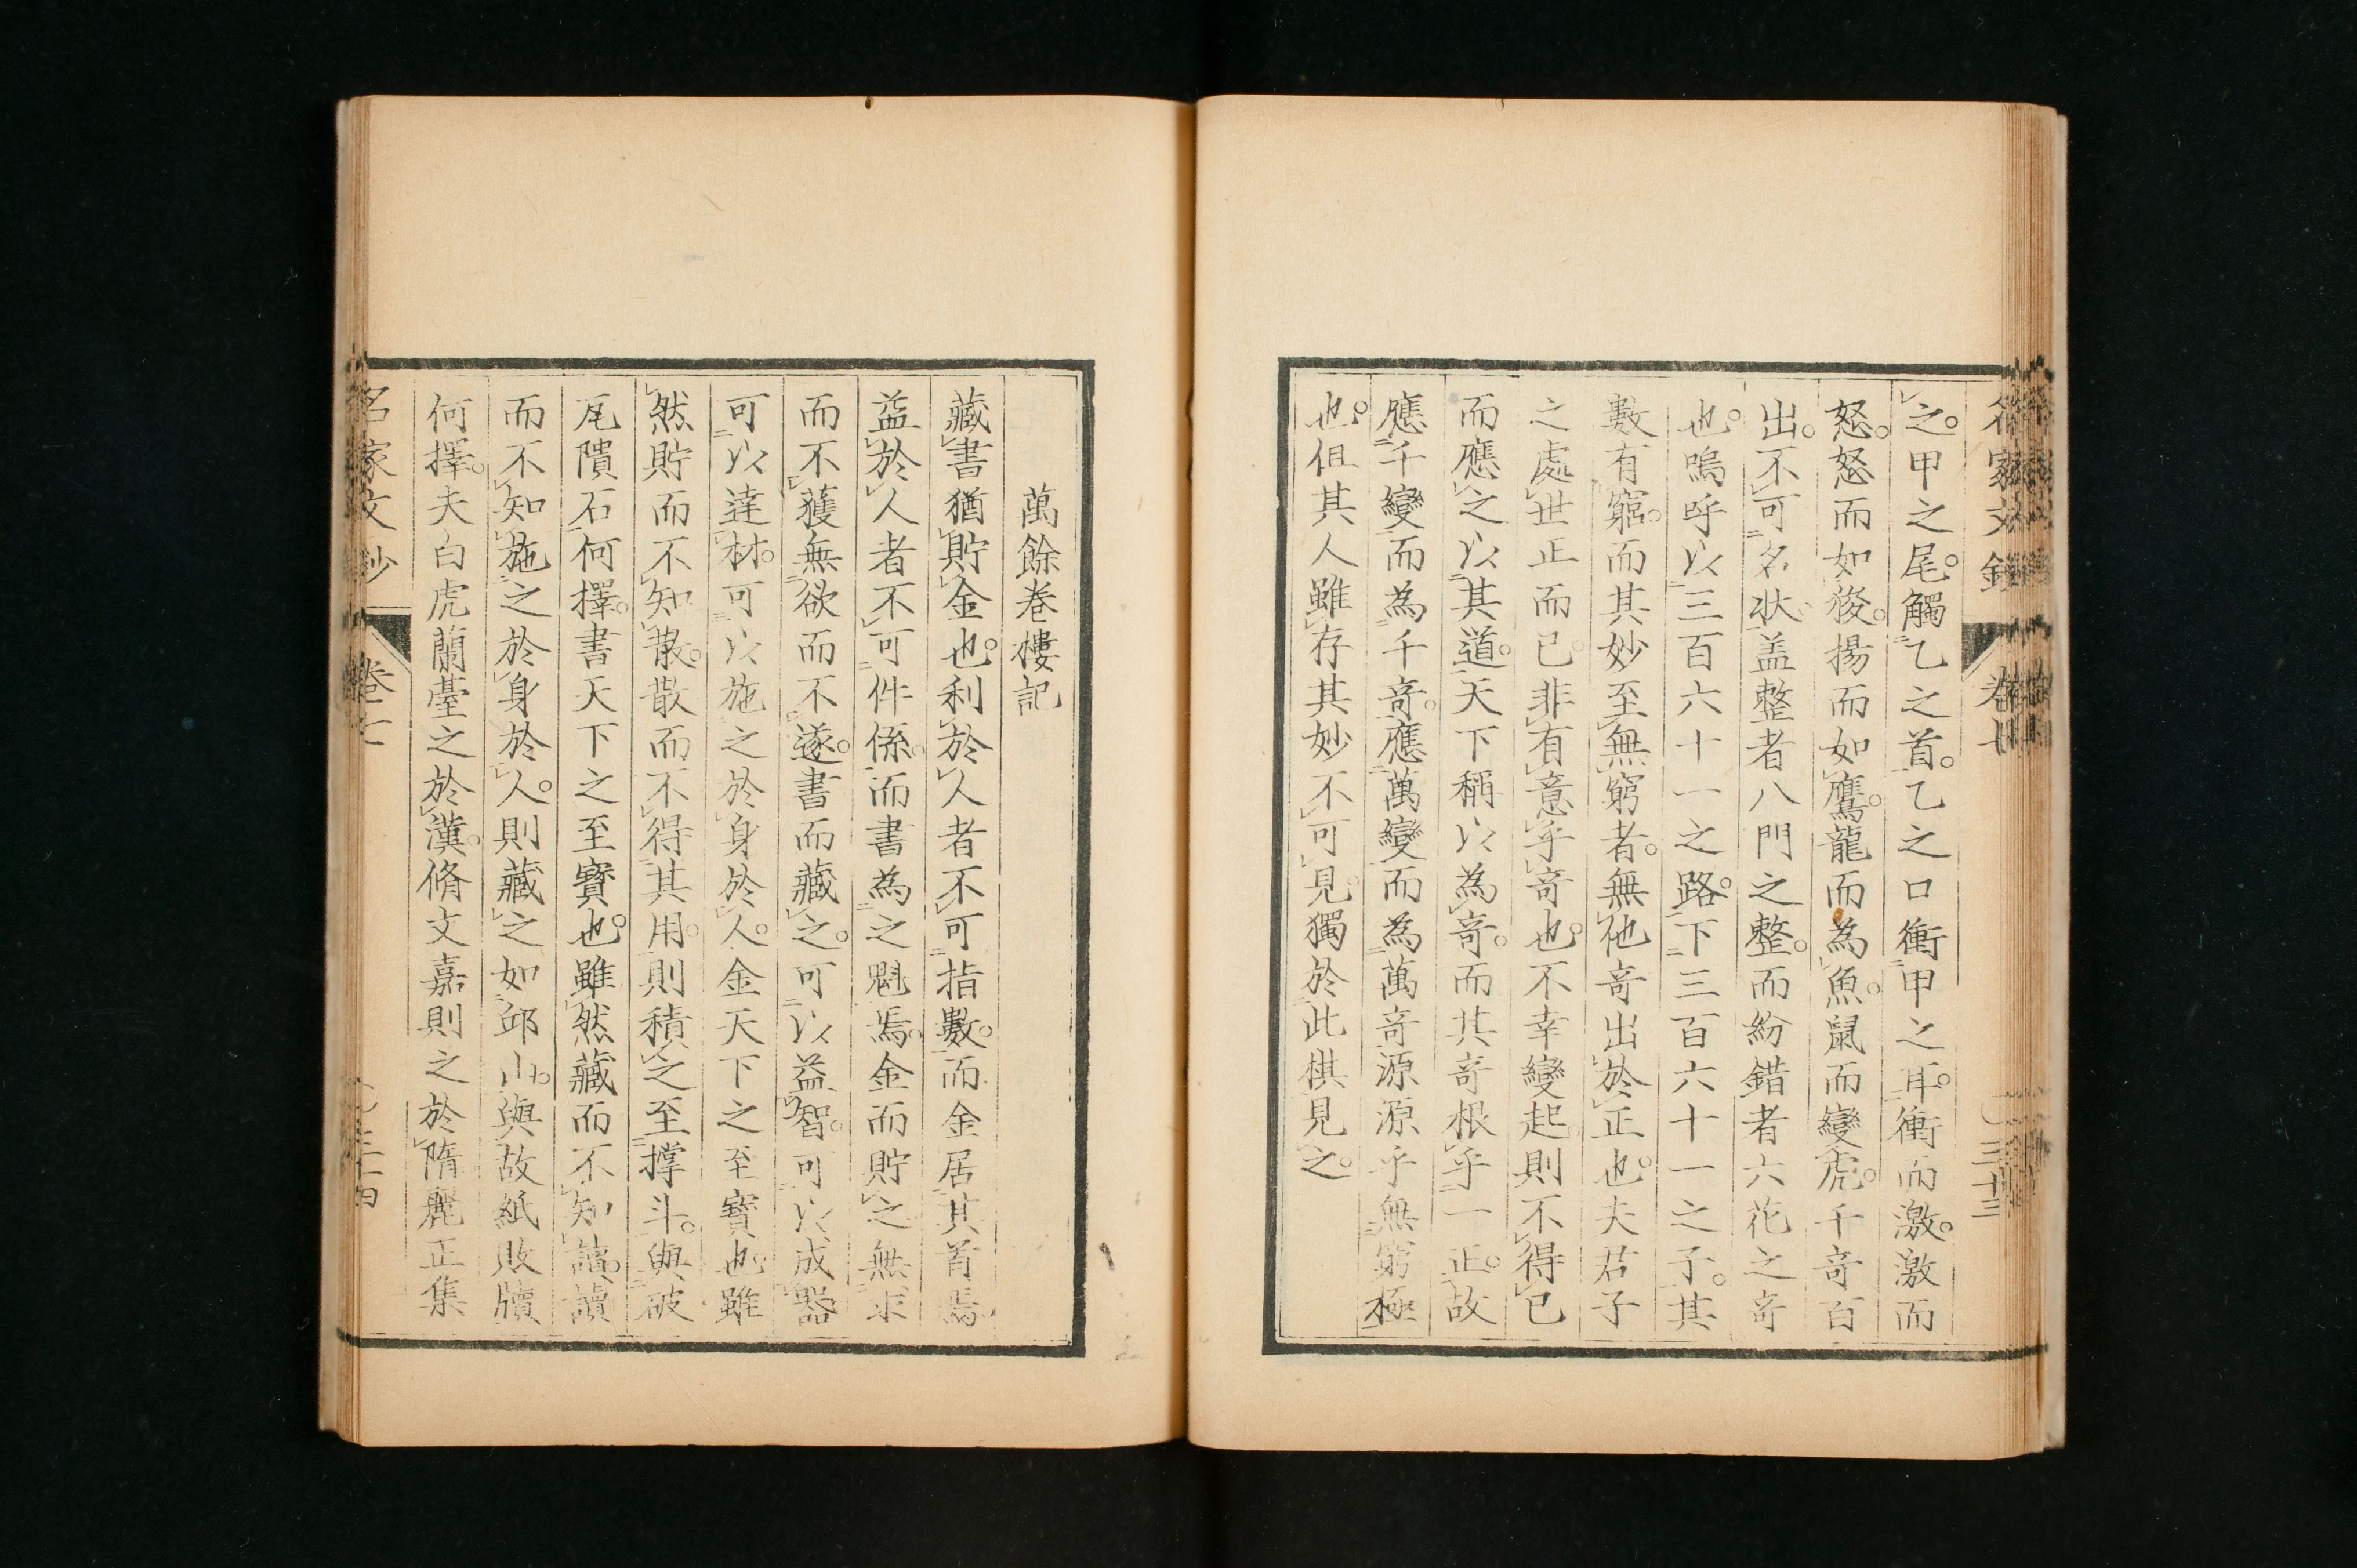 名家文鈔 卷七 三十三
之。甲之尾。觸乙之首。乙之口衝甲之耳。衝而激。激而
怒。怒而如狻。揚而如鷹。龍而為魚。鼠而變虎。千奇百
出。不可名狀。盖整者八門之整。而紛錯者六花之奇
也。嗚呼以三百六十一之路。下三百六十一之子。其
數有窮。而其妙至無窮者。無他奇出於正也。夫君子
之處世正而已。非有意乎奇也。不幸變起則不得已
而應之以其道。天下稱以為奇。而其奇根乎一正。故
應千變而為千奇。應萬變而為萬奇源源乎無窮極
也。但其人雖存其妙不可見。獨於此棋見之。
萬餘卷樓記
藏書猶貯金也。利於人者不可指數。而金居其首焉。
益於人者不可件係。而書為之魁焉。金而貯之無求
而不獲無欲而不遂。書而藏之。可以益智。可以成器
可以達材。可以施之於身於人。金天下之至寶也。雖
然貯而不知散。散而不得其用。則積之至撐斗。與破
瓦隤石何擇。書天下之至寶也。雖然藏而不知讀。讀
而不知施之於身於人。則藏之如邱山。與故紙敗牘
何擇。夫白虎蘭臺之於漢。脩文嘉則之於隋麗正集
名家文鈔 卷七 三十四